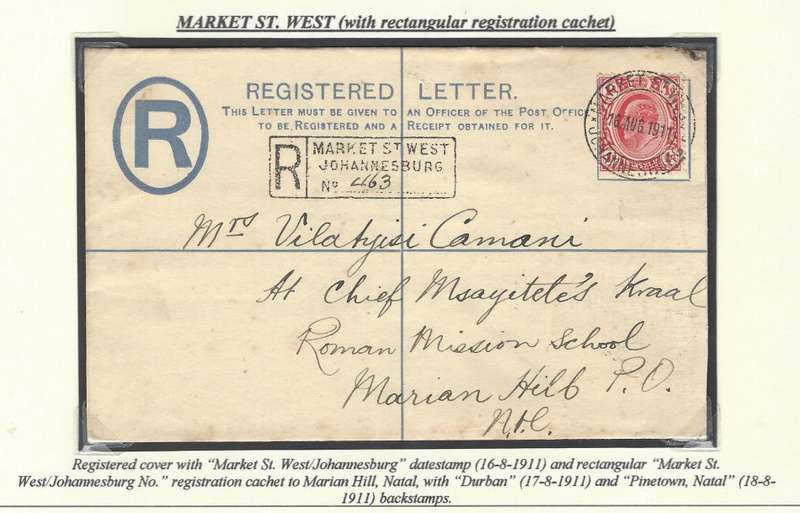 MARKET ST. WEST (with rectangular registration cachet)
R
REGISTERED LETTER.
THIS LETTER MUST BE GIVEN TO AN OFFICER OF THE POST OFFICE
TO BE REGISTERED AND A RECEIPT OBTAINED FOR IT.
R
MARKET ST WEST
JOHANNESBURG
No 463
MARKET ST. WEST
16 AUG 1911
JOHANNESBURG
Mrs Vilahjisi Camani
At Chief Msayitete's Kraal
Roman Mission School
Marian Hill P.O.
Registered cover with "Market St. West/Johannesburg" datestamp (16-8-1911) and rectangular "Market St.
West/Johannesburg No." registration cachet to Marian Hill, Natal, with "Durban" (17-8-1911) and "Pinetown, Natal" (18-8-
1911) backstamps.